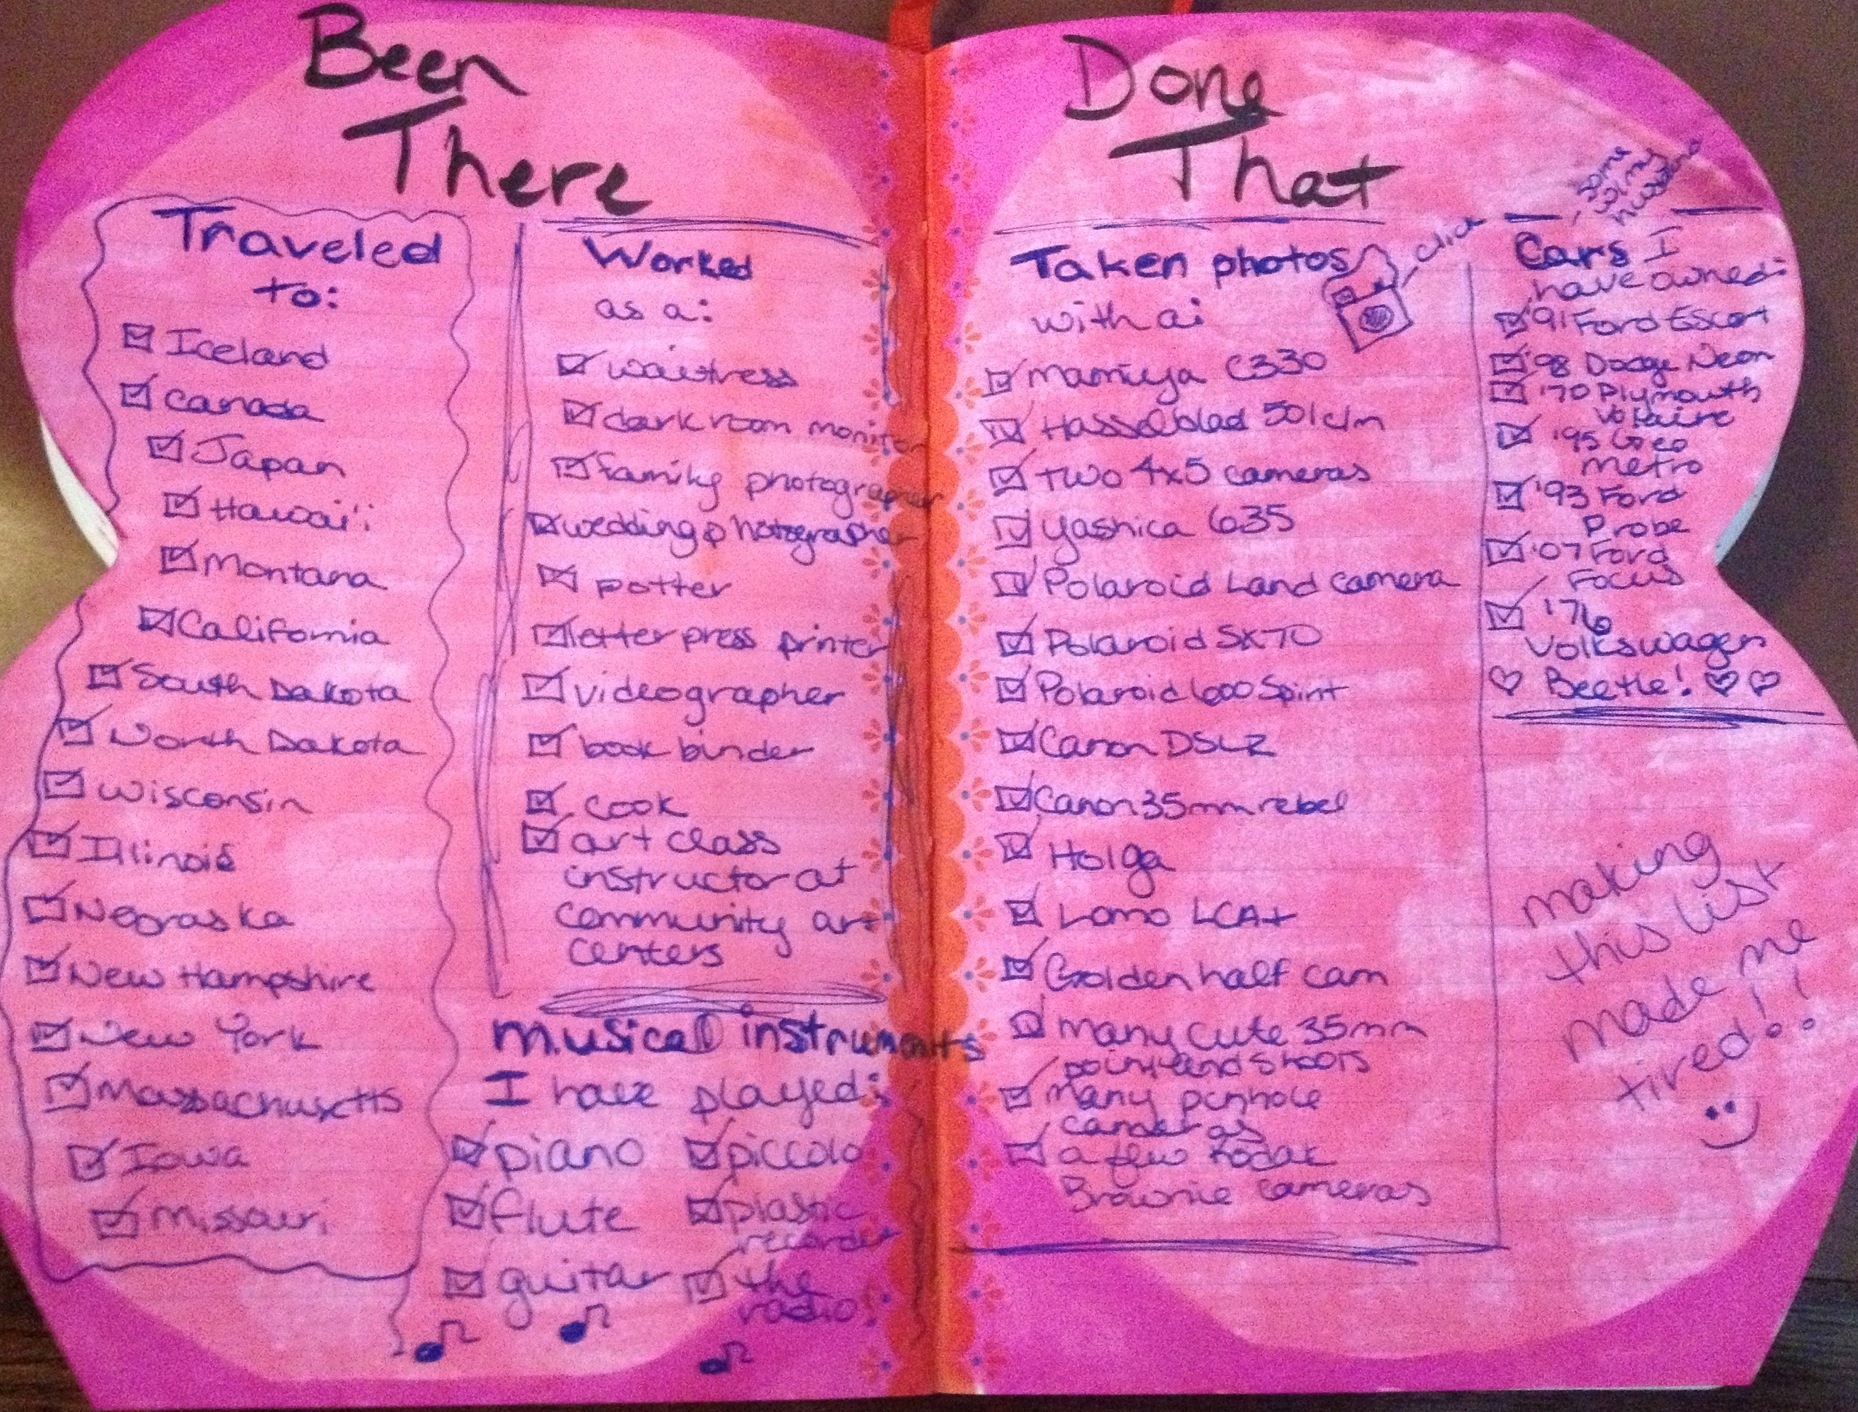 Been
There
Traveled
to:
Iceland
Canada
Japan
Hawai'i
Montana
California
South Dakota
North Dakota
Wisconsin
Illinois
Nebraska
New Hampshire
New York
Massachusetts
Iowa
Missouri
Worked
as a:
waitress
darkroom monitor
family photographer
wedding photographer
potter
letterpress printer
videographer
book binder
cook
art class
instructor at
community art
centers
musical instruments
I have played:
piano
piccolo
flute
plastic
recorder
guitar
the
radio!
Done
That
Taken photos
with a:
click
Mamiya C330
Hasselblad 501c/m
Two 4x5 cameras
Yashica 635
Polaroid Land camera
Polaroid SX70
Polaroid 600 Spirit
Canon DSLR
Canon 35mm rebel
Holga
Lomo LCA+
Golden half cam
many cute 35mm
point and shoots
many pinhole
cameras
a few Kodak
Brownie cameras
some
w/my
husband
Cars I
have owned:
'91 Ford Escort
'98 Dodge Neon
'70 Plymouth
'95 Geo
metro
'93 Ford
Probe
'07 Ford
Focus
'76
Volkswagen
Beetle!
making
this list
made me
tired!!